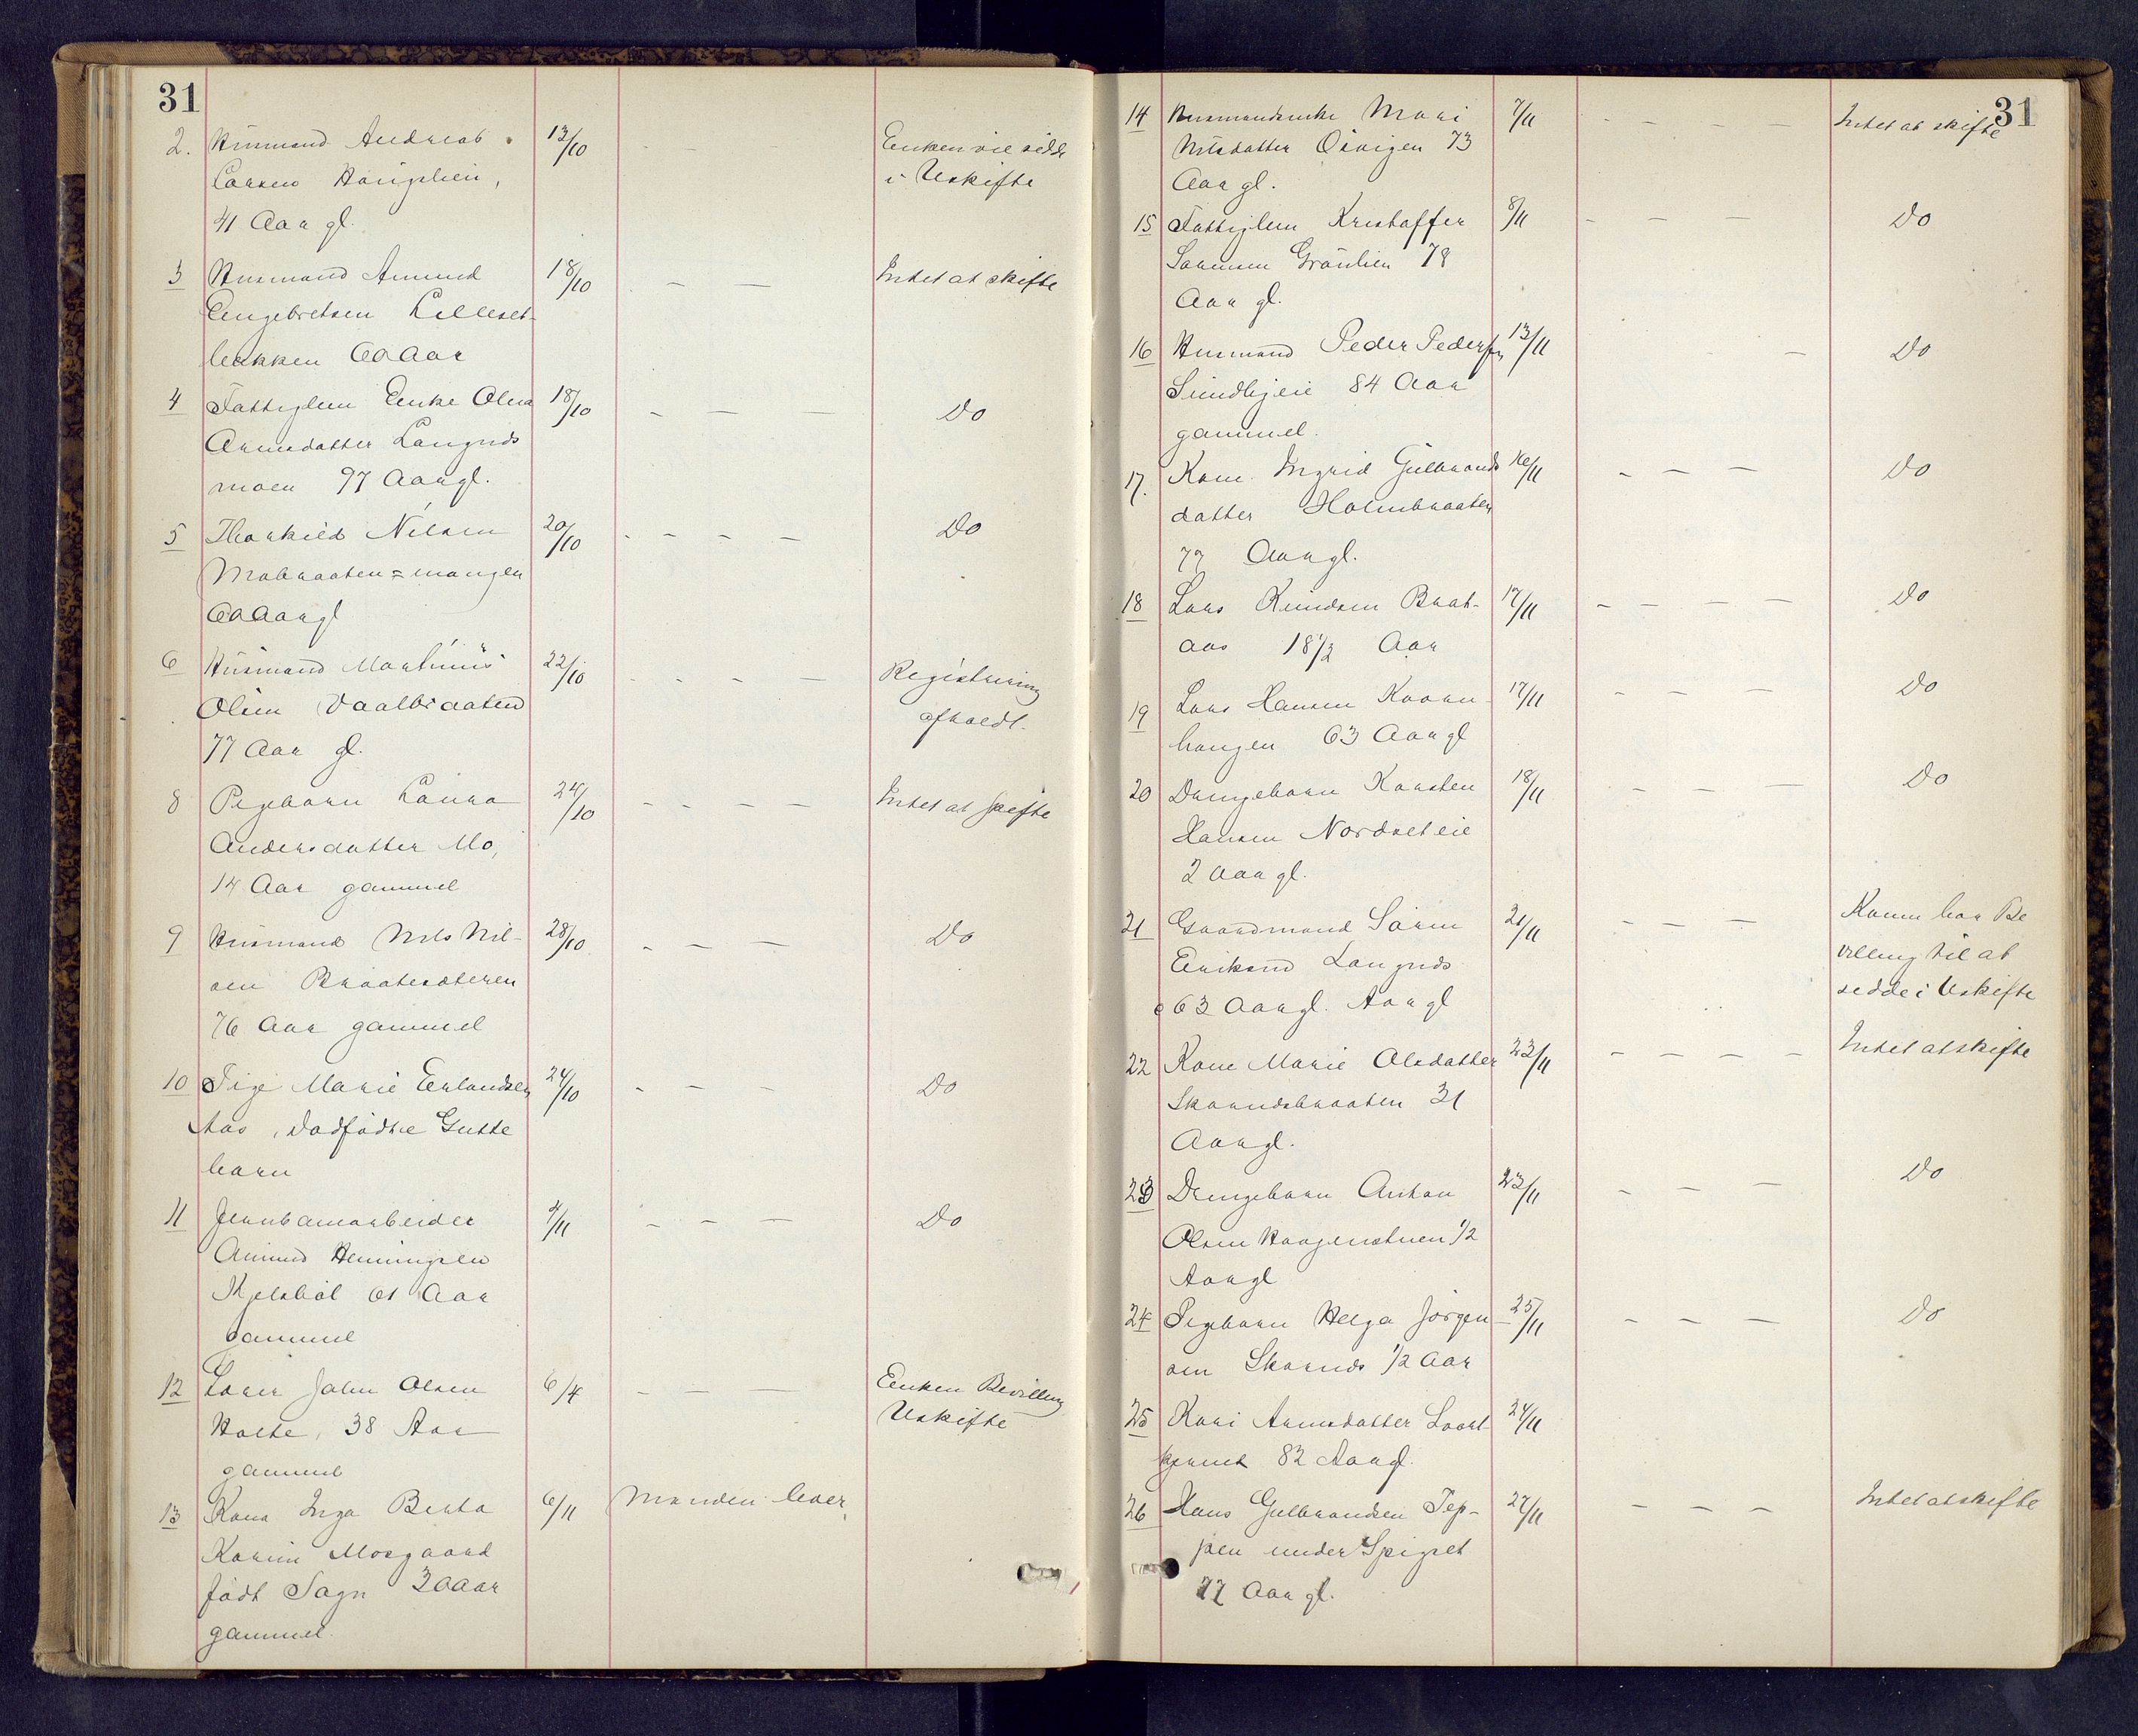 31
2. Husmand Andreas 13/10 – – Enken vil sidde
Larsen Haugslien, i Uskifte
41 Aar gl.
3 Husmand Amund 18/10 – – Intet at skifte
Engebretsen Lilleset-
bakken 60 Aar
4 Fattiglem Enke Olea 18/10 – – – Do
Arnesdatter Langnds
moen 97 Aar gl.
5 Thorkild Nilsen 20/10 – – – – Do
Mobraaten = mangen
60 Aar gl
6 Husmand Martinius 22/10 – – – – Registrering
Olsen Vaalbraaten afholdt.
77 Aar gl.
8 Pigebarn Laura 24/10 – – – – Intet at skifte
Andersdatter Mo,
14 Aar gammel
9 Husmand Nils Nil- 28/10 – – – Do
sen Braatesæteren
76 Aar gammel
10 Pige Marie Erlandsen 24/10 – – – Do
Aas, dødfødte Gutte
barn
11 Jernbanearbeider 4/11 – – – Do
Amund Henningsen
Kjelsbøl 61 Aar
gammel
12 Lærer John Olsen 6/4 – – – Enken Bevilling
Holte, 38 Aar Uskifte
gammel
13 Kona Inga Berta 6/11 Manden lever,
Karine Mosgaard
født Sagn 30 Aar
gammel.
31
14 Husmandsenke Mari 7/11 – – – – Intet at skifte
Nilsdatter Oivigen 73
Aar gl.
15 Fattiglem Kristoffer 8/11 – – – Do
Larsen Grönlien 78
Aar gl.
16 Husmand Peder Pedersen 13/11 – – Do
Sundbyeie 84 Aar
gammel.
17. Kone Ingrid Gulbrands 16/11 – – – Do
datter Holmbraaten
77 Aar gl.
18 Lars Knudsen Brat- 17/11 – – – – Do
aas 18 1/2 Aar
19 Lars Hansen Kvarn- 17/11 – – – Do
haugen 63 Aar gl
20 Drengebarn Karsten 18/11 – – – Do
Hansen Nordseteie
2 Aar gl.
21 Gaardmand Søren 21/11 – – – Konen har Be
Eriksen Langnds villing til at
63 Aar gl. Aar gl sidde i Uskifte
22 Kone Marie Olsdatter 23/11 – – – – Intet at skifte
Skarndsbraaten 31
Aar gl.
23 Drengebarn Anton 23/11 – – – Do
Olsen Haagenstuen 1/2
Aar gl
24 Pigebarn Helga Jørgen 25/11 – – – Do
sen Skarnds 1/2 Aar
25 Kari Arnesdatter 24/11 – – –
82 Aar gl.
26 Hans Gulbrandsen Tep- 27/11 – – – Intet at skifte
pen under Spigset
77 Aar gl.